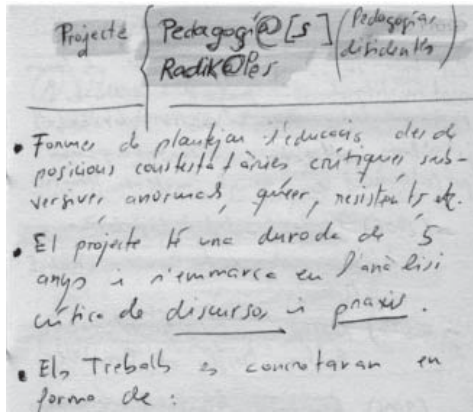 Projecte
Pedagogí@[s] (Pedagogías
disidentes
Radik@les
• Formes de plantejar l'educació des de
posicions contestatàries crítiques sub-
versives anormals, queer, resistents etc.
• El projecte té una durada de 5
anys i s'emmarca en l'anàlisi
crítica de discursos i praxis.
• Els Treballs es concretaran en
forma de: